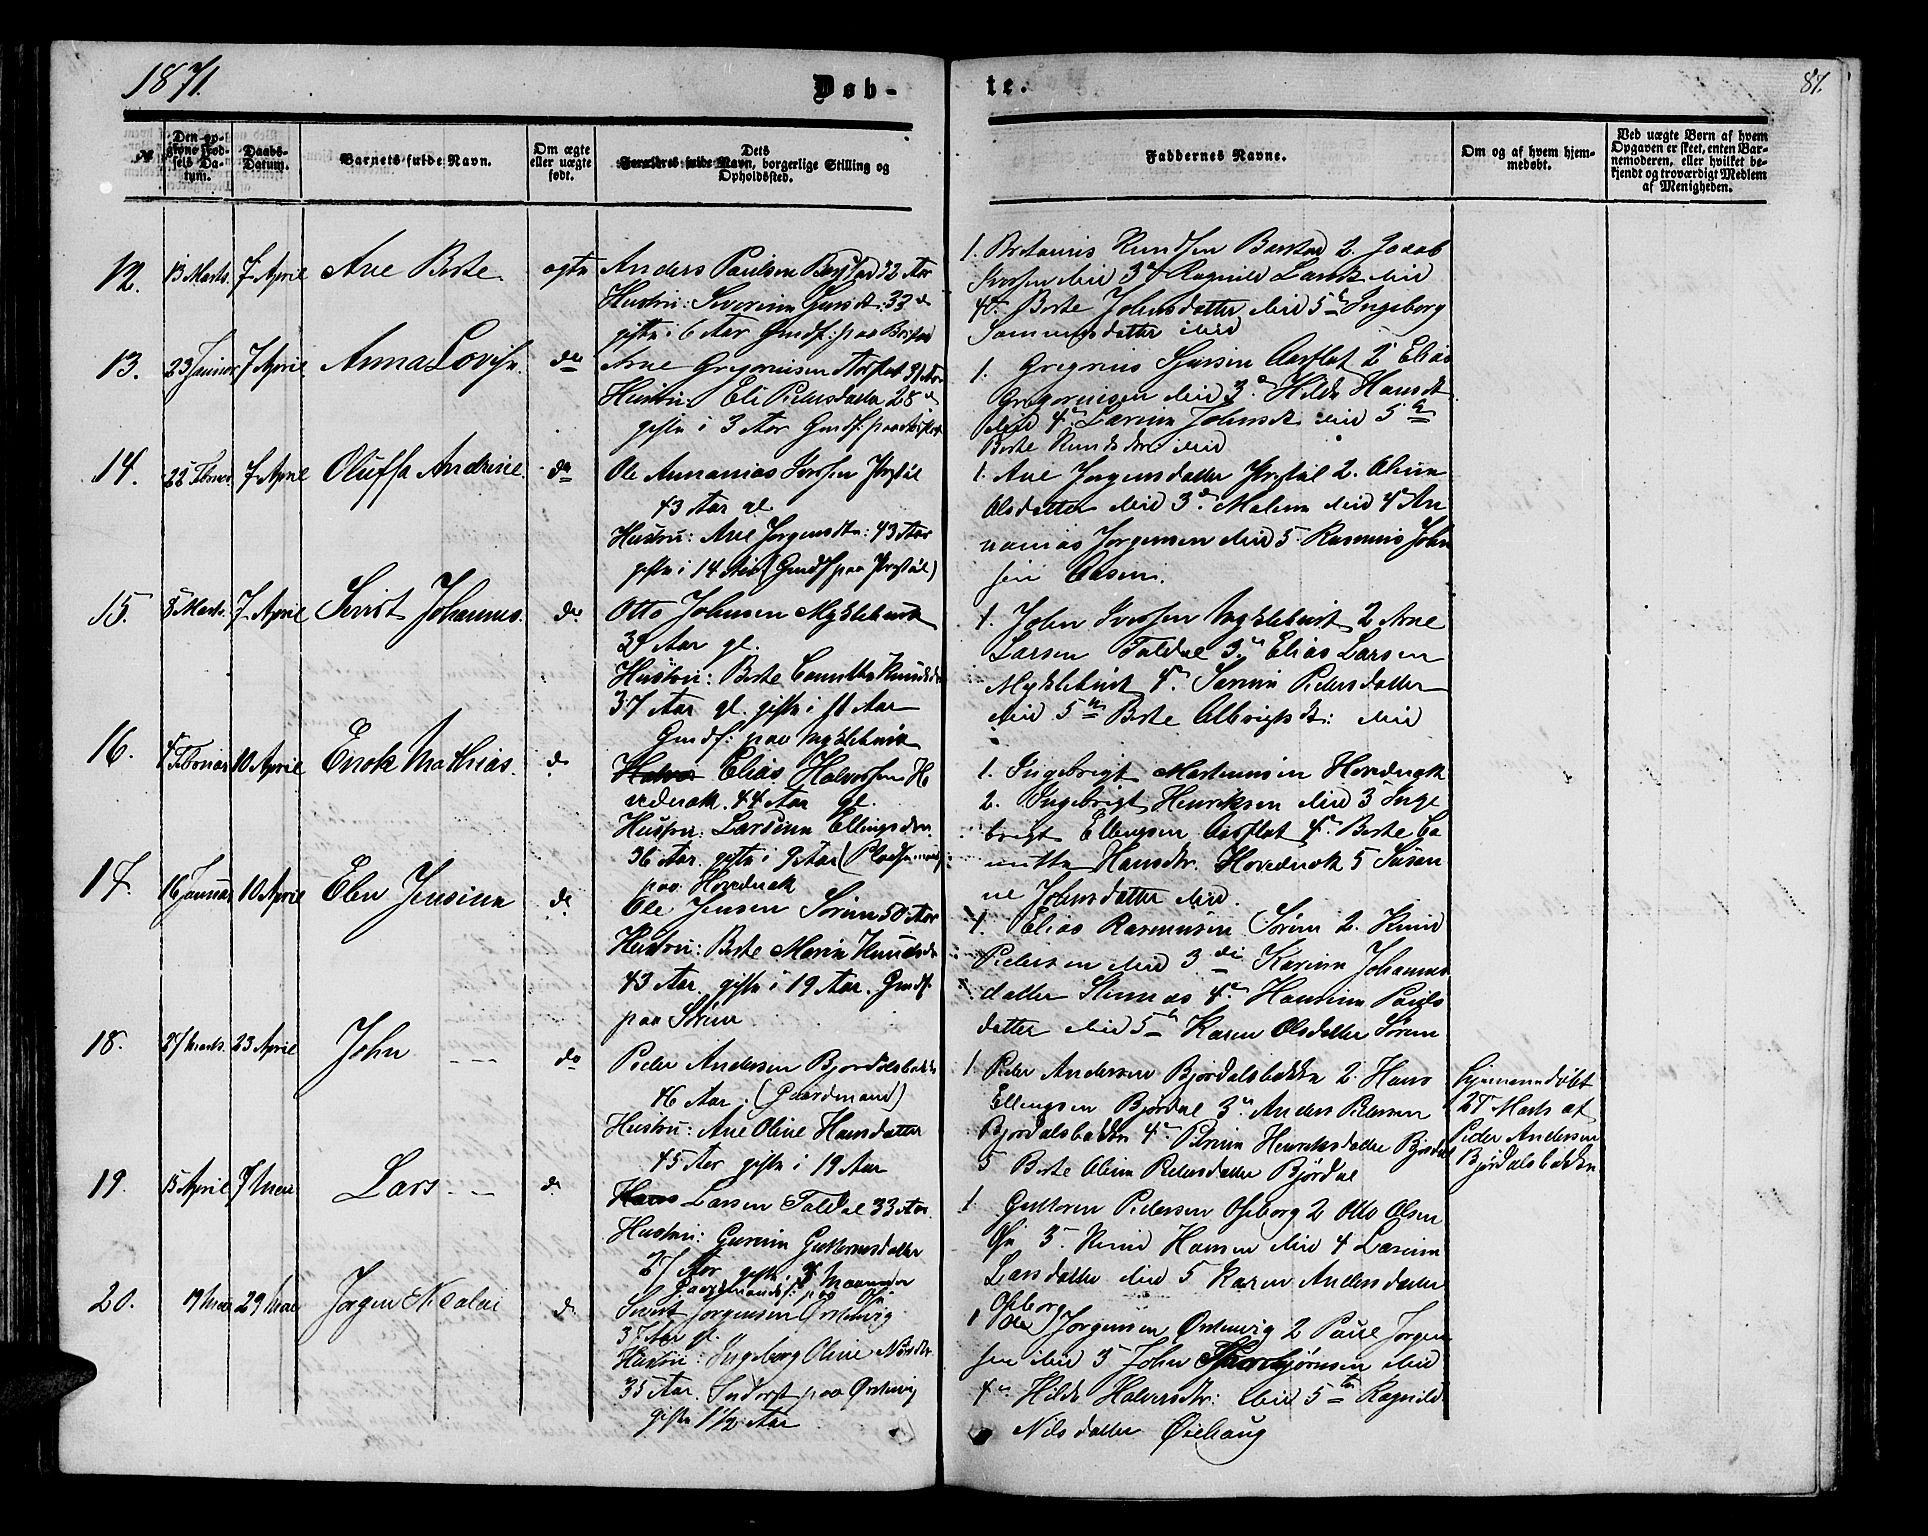 1871.
Døb-
te.
87.
№
Den opgivne Fødsels Datum.
Daabs-Datum.
Barnets fulde Navn.
Om ægte eller uægte født.
Dets
Forældres fulde Navn, borgerlige Stilling og
Opholdssted.
Faddernes Navne.
Om og af hvem hjemmedøbt.
Ved uægte Børn af hvem
Opgaven er skeet, enten Bar-
nemoderen, eller hvilket be-
kjendt og troværdigt Medlem
af Menigheden.
12. 13 Marts. 7 April Ane Berte ægte
Anders Paulsen 32 Aar
Hustru: Severine 33
gifte i 6 Aar Gmdf: paa
1. Knudsen 2. Jacob
Iversen ibid 3 Ragnild ibid
4 Berte Johnsdatter ibid 5 Ingeborg
ibid
13. 23 Januar 7 April Anna Lovise do
Arne Gregoriusen Aarflot 31 Aar
Hustru Eli Pedersdatter 28
gifte i 3 Aar Gmdf: paa Aarflot
1. Gregorius Aarflot 2 Elias
Gregoriusen ibid 3 Hilde Hansdt
ibid 4 Larsine Johnsdt ibid 5
Berte Knudsdtr ibid
14. 22 Februar 7 April Oluffa Andrine. do
Ole Annanias Iversen
43 Aar gl
Hustru: Ane Jørgensdtr: 43 Aar
gifte i 14 Aar (Gmdf paa
1. Ane Jørgensdatter 2. Oline
Olsdatter ibid 3 Malene ibid 4 An
nanias Jørgensen ibid 5 Rasmus John
sen Aasen.
15. 5 Marts. 7 April Sivert Johannes. do
Otto Johnsen Myklebust
Aar gl.
Hustru: Berte Knudsdtr
37 Aar gl. gifte i 11 Aar
Gmdf: paa Myklebust
1. John Iversen Myklebust 2 Arne
Larsen Foldal 3 Elias Larsen
Myklebust 4 Pedersdatter
ibid 5 Berte Albrigtsdt: ibid
16. Februar 10 April Enok Mathias. do
Elias Halvorsen Ho
vedenak. 44 Aar gl.
Hustru: Larsine Ellingsdtr.
36 Aar. gifte i 9 Aar (Pladsemand
paa Hovdenak
1. Ingebrigt Martinusen Hovdenak
2. Ingebrigt Henriksen ibid 3 Inge
brigt Ellingsen Aarflot 4 Berte Ca
Hansdtr. Hovdenak 5 Susan
ne Johnsdatter ibid.
17. 16 Januar 10 April Elen Jensine do
Ole Jensen 50 Aar
Hustru: Berte Marie Knudsdtr
43 Aar gifte i 19 Aar. Gmdf:
paa
1. Elias Rasmusen 2. Knud
Pedersen ibid 3 Karine Johannes
datter 4 Hansine Pouls
datter ibid 5 Karen Olsdatter
18. 27 Marts. 23 April John do
Peder Andersen Bjørdalsbakke
46 Aar. (Gaardmand)
Hustru: Ane Oline Hansdatter
45 Aar gifte i 19 Aar
1 Peder Andersen Bjørdalsbakke 2. Hans
Ellingsen Bjørdal 3 Anders Pedersen
Bjørdalsbakke 4 Petrine Henriksdatter Bjørdal
5 Berte Oline Pedersdatter Bjørdal
hjemmedøbt
27 Marts af
Peder Andersen
Bjørdalsbakke
19. 15 April 7 Mai Lars do
Hans Larsen Foldal 33 Aar.
Hustru: Gurine Guttormsdatter
27 Aar gifte i 8 Maaneder
Gaardmandsf: paa Øie
1 Guttorm Pedersen Osborg 2 Otto Olsen
Øie 3. Knud Hansen ibid 4 Larsine
Larsdatter ibid 5 Karen Andersdatter
Osborg
20. 19 Mai 29 Mai Jørgen Nicolai do
Sivert Jørgensen Ørstenvig
37 Aar gl.
Hustru: Ingeborg Oline Nilsdtr.
35 Aar. Inderst paa Ørstenvig
gifte 1½ Aar
1 Ole Jørgensen Ørstenvig 2 Paul Jørgen
sen ibid 3 John Thorbjørnsen ibid
4 Hilde Halvorsdtr: ibid 5 Ragnild
Nilsdatter Øiehaug